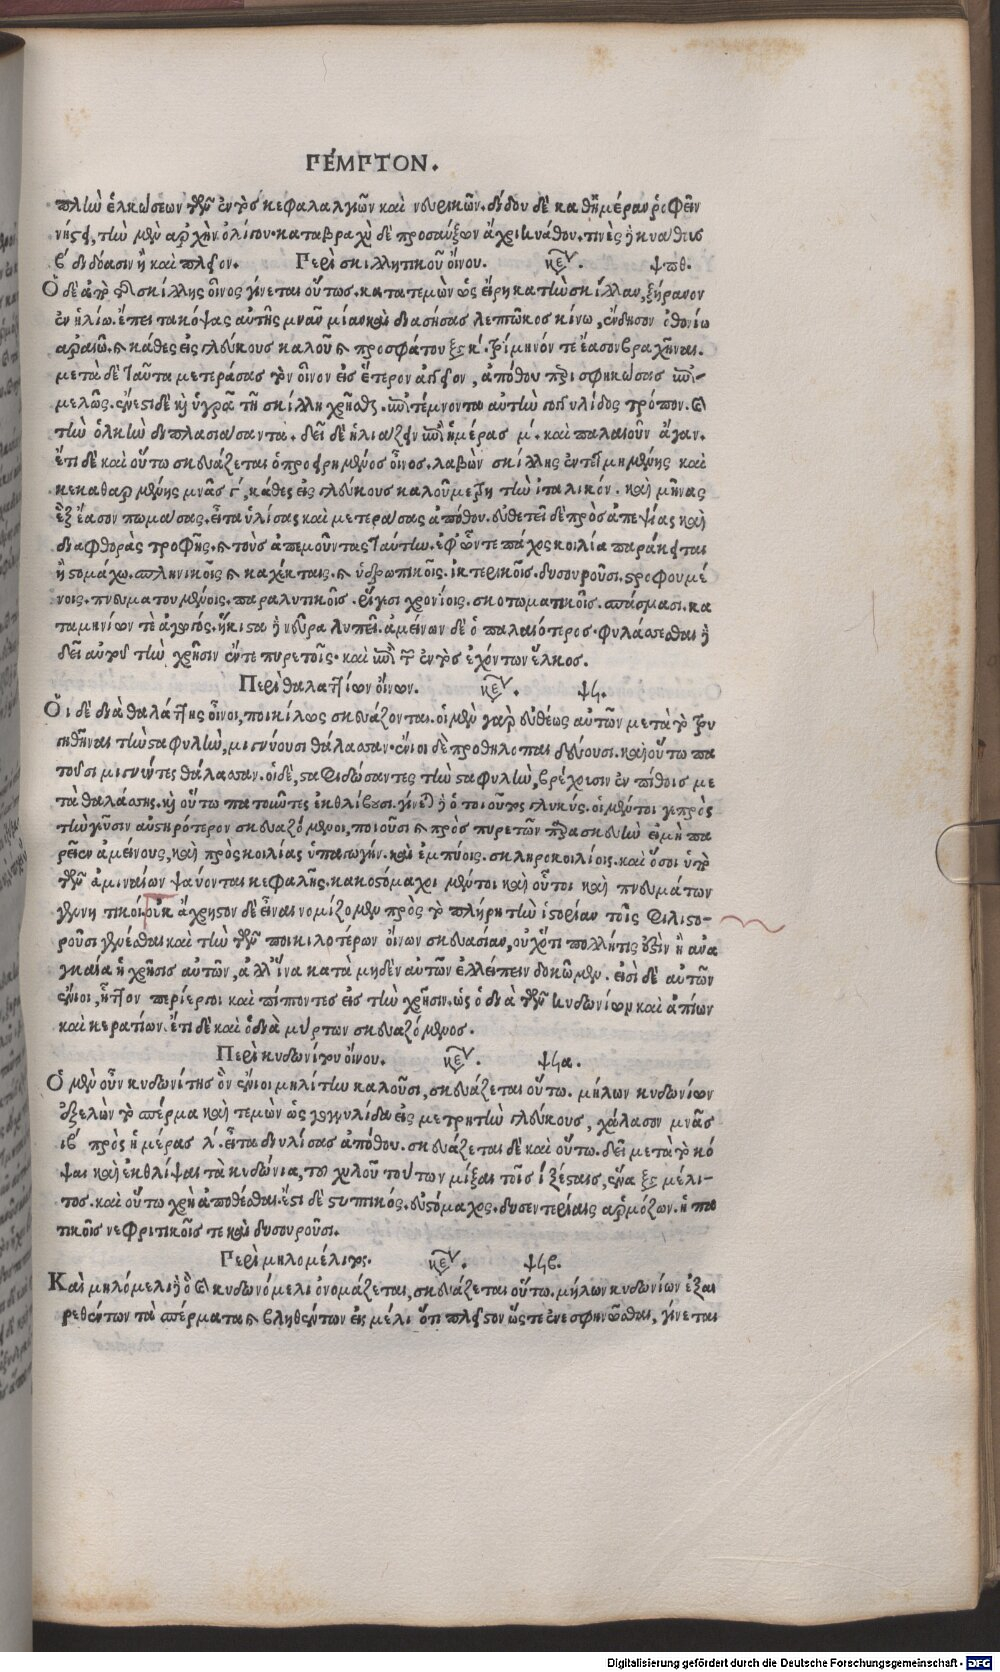 ΠΕΜΠΤΟΝ.
πλὴν ἑλκώσεων τῶν ἐντὸς κεφαλαλγιῶν καὶ νευρικῶν. δίδου δὲ καθ' ἡμέραν ῥοφεῖν
νήστει, τὴν μὲν ἀρχὴν ὀλίγον. καταβραχὺ δὲ προσαύξων ἄχρι κυάθου. τινὲς ἢ κυάθους
β διδόασιν ἢ καὶ πλεῖον. Περὶ σκιλλητικοῦ οἴνου. κεφ. ψπθ.
Ὁ δὲ ἀπὸ τῆς σκίλλης οἶνος γίνεται οὕτως. κατατεμὼν ὡς εἴρηκα τὴν σκίλλαν, ξήρανον
ἐν ἡλίῳ. ἔπειτα κόψας αὐτῆς μνᾶν μίαν καὶ διασήσας λεπτῷ κοσκίνῳ, ἔνδησον ὀθονίῳ
ἀραιῷ. καὶ κάθες εἰς γλεύκους καλοῦ καὶ προσφάτου ξε κ. τρίμηνόν τε ἔασον βραχῆναι.
μετὰ δὲ ταῦτα μετεράσας τὸν οἶνον εἰς ἕτερον ἀγγεῖον, ἀπόθου περισφηκώσας ἐπι-
μελῶς. ἔνεστι δὲ καὶ ὑγρᾷ τῇ σκίλλῃ χρῆσθαι. ἐπιτέμνοντα αὐτὴν γογγυλίδος τρόπον. καὶ
τὴν ὁλκὴν διπλασιάσαντα. δεῖ δὲ ἡλιάζειν ἐπὶ ἡμέρας μ. καὶ παλαιοῦν ἄγαν.
ἔτι δὲ καὶ οὕτω σκευάζεται ὁ προειρημένος οἶνος. λαβὼν σκίλλης ἐντετμημένης καὶ
κεκαθαρμένης μνᾶς γ, κάθες εἰς γλεύκους καλοῦ μετρητὴν ἰταλικόν. καὶ μῆνας
ἓξ ἔασον πωμάσας. εἶτα ὑλίσας καὶ μετεράσας ἀπόθου. εὐθετεῖ δὲ πρὸς ἀπεψίας καὶ
διαφθορὰς τροφῆς. καὶ τοὺς ἀπεμοῦντας ταύτην. ἐφ' ὧν τε πάχος κοιλίᾳ παράκειται
ἢ στομάχῳ. σπληνικοῖς καὶ καχέκταις. καὶ ὑδρωπικοῖς. ἰκτερικοῖς. δυσουροῦσι. στροφουμέ
νοις. πνευματουμένοις. παραλυτικοῖς. ῥίγεσι χρονίοις. σκοτωματικοῖς. σπάσμασι. κα
ταμηνίων τε ἀγωγός. ἥκιστα ἢ νεῦρα λυπεῖ. ἀμείνων δὲ ὁ παλαιότερος. φυλάσσεσθαι ἢ
δεῖ αὐτοῦ τὴν χρῆσιν ἔν τε πυρετοῖς. καὶ ἐπὶ τῶν ἐντὸς ἐχόντων ἕλκος.
Περὶ θαλασσίων οἴνων. κεφ. ψϟ.
Οἱ δὲ διὰ θαλάσσης οἶνοι, ποικίλως σκευάζονται. οἱ μὲν γὰρ εὐθέως αὐτῶν μετὰ τὸ τρυ
γηθῆναι τὴν σταφυλὴν, μιγνύουσι θάλασσαν. ἔνιοι δὲ προηλιοπαστεύουσι. καὶ οὕτω πα
τοῦσι μιγνύντες θάλασσαν. οἱ δὲ, σταφιδώσαντες τὴν σταφυλὴν, βρέχουσιν ἐν πίθοις με
τὰ θαλάσσης. καὶ οὕτω πατοῦντες ἐκθλίβουσι. γίνεται ἢ ὁ τοιοῦτος γλυκύς. οἱ μέντοι γε πρὸς
τὴν γεῦσιν αὐστηρότερον σκευαζόμενοι, ποιοῦσι καὶ πρὸς πυρετῶν παρασκευὴν εἰ μὴ πα
ρείεν ἀμείνους, καὶ πρὸς κοιλίας ὑπαγωγὴν. καὶ ἐμπύοις. σκληροκοιλίοις. καὶ ὅσοι ὑπὸ
τῶν ἀμιναίων ψαύονται κεφαλῆς. κακοστόμαχοι μέντοι καὶ οὗτοι καὶ πνευμάτων
γεννητικοί. οὐκ ἄχρηστον δὲ εἶναι νομίζομεν πρὸς τὸ πλήρη τὴν ἱστορίαν τοῖς φιλιστο-
ροῦσι γενέσθαι καὶ τὴν τῶν ποικιλοτέρων οἴνων σκευασίαν, οὐχ ὅτι πολλή τις ἐστὶν ἢ ἀνα
γκαία ἡ χρῆσις αὐτῶν, ἀλλ' ἵνα κατὰ μηδὲν αὐτῶν ἐλλείπειν δοκῶμεν. εἰσὶ δὲ αὐτῶν
ἔνιοι, ἧττον περίεργοι καὶ πίπτοντες εἰς τὴν χρῆσιν. ὡς ὁ διὰ τῶν κυδωνίων καὶ ἀπίων
καὶ κερατίων. ἔτι δὲ καὶ ὁ διὰ μύρτων σκευαζόμενος.
Περὶ κυδωνίτου οἴνου. κεφ. ψϟα.
Ὁ μὲν οὖν κυδωνίτης ὃν ἔνιοι μηλίτην καλοῦσι, σκευάζεται οὕτω. μήλων κυδωνίων
ἐξελὼν τὸ σπέρμα καὶ τεμὼν ὡς γογγυλίδα εἰς μετρητὴν γλεύκους, χάλασον μνᾶς
ιβ πρὸς ἡμέρας λ. εἶτα διυλίσας ἀπόθου. σκευάζεται δὲ καὶ οὕτω. δεῖ μετὰ τὸ κό
ψαι καὶ ἐκθλίψαι τὰ κυδώνια, τοῦ χυλοῦ τούτων μίξαι τοῖς ι ξέσταις, ἕνα ξε μέλι-
τος. καὶ οὕτω χρὴ ἀποθέσθαι. ἔστι δὲ στυπτικός. εὐστόμαχος. δυσεντερίαις ἁρμόζων. ἡπα
τικοῖς νεφριτικοῖς τε καὶ δυσουροῦσι.
Περὶ μηλομέλιτος. κεφ. ψϟβ.
Καὶ μηλόμελι ἢ ὃ καὶ κυδωνόμελι ὀνομάζεται, σκευάζεται οὕτω. μήλων κυδωνίων ἐξαι
ρεθέντων τὰ σπέρματα καὶ βληθέντων εἰς μέλι ὅτι πλεῖστον ὥστε ἐνεσφηνῶσθαι, γίνεται
Digitalisierung gefördert durch die Deutsche Forschungsgemeinschaft - DFG